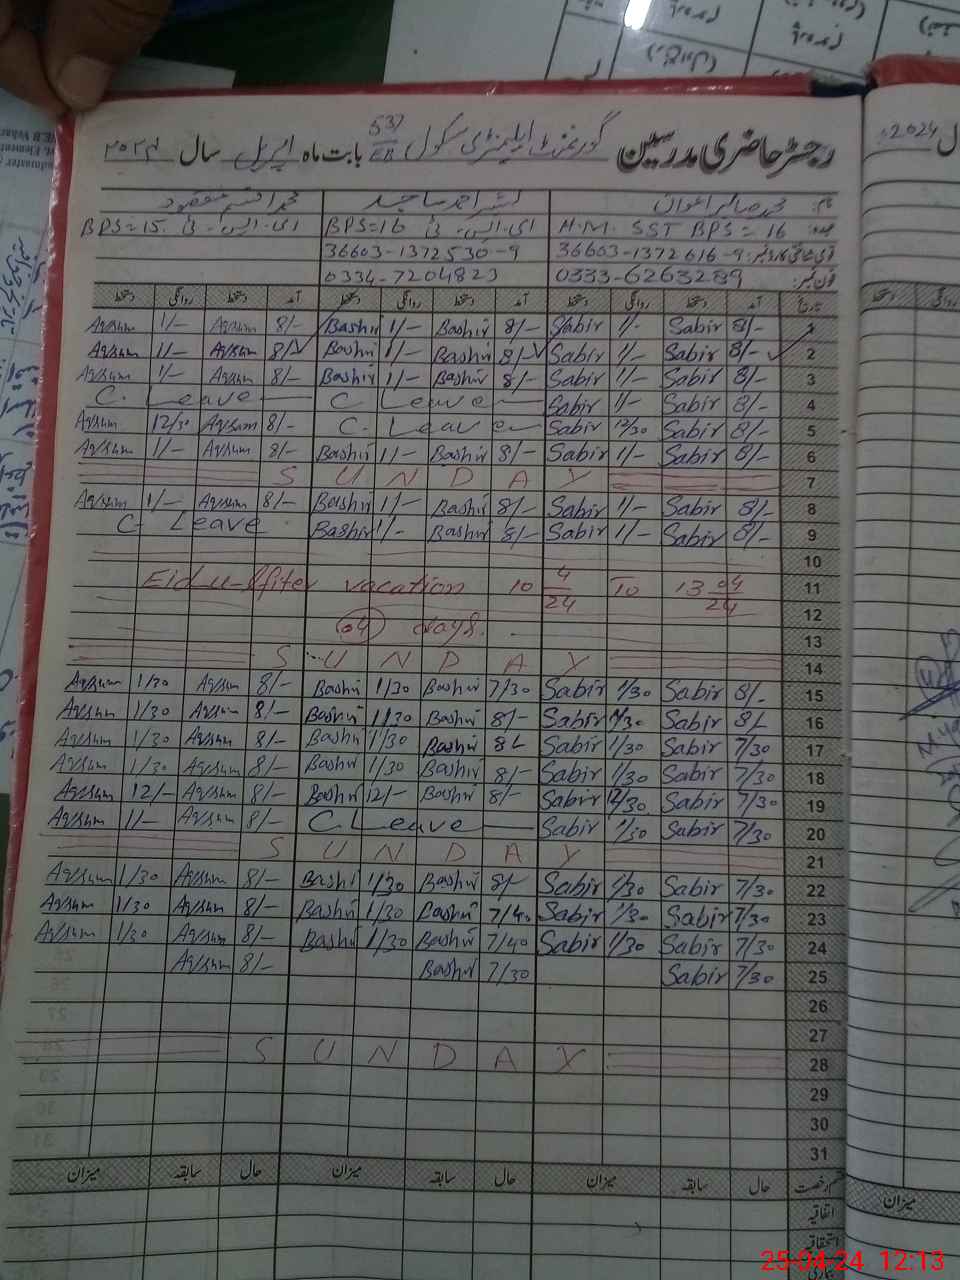 رجسٹر حاضری مدرسین گورنمنٹ ایلیمنٹری سکول 537/EB بابت ماہ اپریل سال ۲۰۲۴
نام: محمد صابر اعوان بشیر احمد ساجد
عہدہ: H.M. SST BPS = 16 ای۔ایس۔ٹی BPS=16 ای۔ایس۔ٹی BPS=15
قومی شناختی کارڈ نمبر: 36603-1372616-9 36603-1372530-9
فون نمبر: 0333-6263289 0334-7204823
تاریخ آمد دستخط روانگی دستخط آمد دستخط روانگی دستخط آمد دستخط روانگی دستخط
1 8/- Sabir 1/- Sabir 8/- Bashir 1/- Bashir 8/- Aqsum 1/- Aqsum
2 8/- Sabir 1/- Sabir 8/- Bashir 1/- Bashir 8/- Aqsum 1/- Aqsum
3 8/- Sabir 1/- Sabir 8/- Bashir 1/- Bashir 8/- Aqsum 1/- Aqsum
4 8/- Sabir 1/- Sabir C Leave C. Leave
5 8/- Sabir 12/30 Sabir C. Leave 8/- Aqsum 12/30 Aqsum
6 8/- Sabir 1/- Sabir 8/- Bashir 1/- Bashir 8/- Aqsum 1/- Aqsum
7 SUNDAY
8 8/- Sabir 1/- Sabir 8/- Bashir 1/- Bashir 8/- Aqsum 1/- Aqsum
9 8/- Sabir 1/- Sabir 8/- Bashir 1/- Bashir C- Leave
10
11 Eid-u-lfiter vacation 10 4/24 To 13 04/24
12
04 days.
13
14 SUNDAY
15 8/- Sabir 1/30 Sabir 7/30 Bashir 1/30 Bashir 8/- Aqsum 1/30 Aqsum
16 8/- Sabir 1/30 Sabir 8/- Bashir 1/30 Bashir 8/- Aqsum 1/30 Aqsum
17 7/30 Sabir 1/30 Sabir 8/- Bashir 1/30 Bashir 8/- Aqsum 1/30 Aqsum
18 7/30 Sabir 1/30 Sabir 8/- Bashir 1/30 Bashir 8/- Aqsum 1/30 Aqsum
19 7/30 Sabir 12/30 Sabir 8/- Bashir 12/- Bashir 8/- Aqsum 12/- Aqsum
20 7/30 Sabir 1/30 Sabir C. Leave 8/- Aqsum 1/- Aqsum
21 SUNDAY
22 7/30 Sabir 1/30 Sabir 8/- Bashir 1/30 Bashir 8/- Aqsum 1/30 Aqsum
23 7/30 Sabir 1/30 Sabir 7/40 Bashir 1/30 Bashir 8/- Aqsum 1/30 Aqsum
24 7/30 Sabir 1/30 Sabir 7/40 Bashir 1/30 Bashir 8/- Aqsum 1/30 Aqsum
25 7/30 Sabir 7/30 Bashir 8/- Aqsum
26
27
28 SUNDAY
29
30
31
قسم رخصت حال سابقہ میزان حال سابقہ میزان حال سابقہ میزان
اتفاقیہ
استحقاقیہ
بیماری
ل 2024ء
روانگی دستخط
میزان
25-04-24 12:13